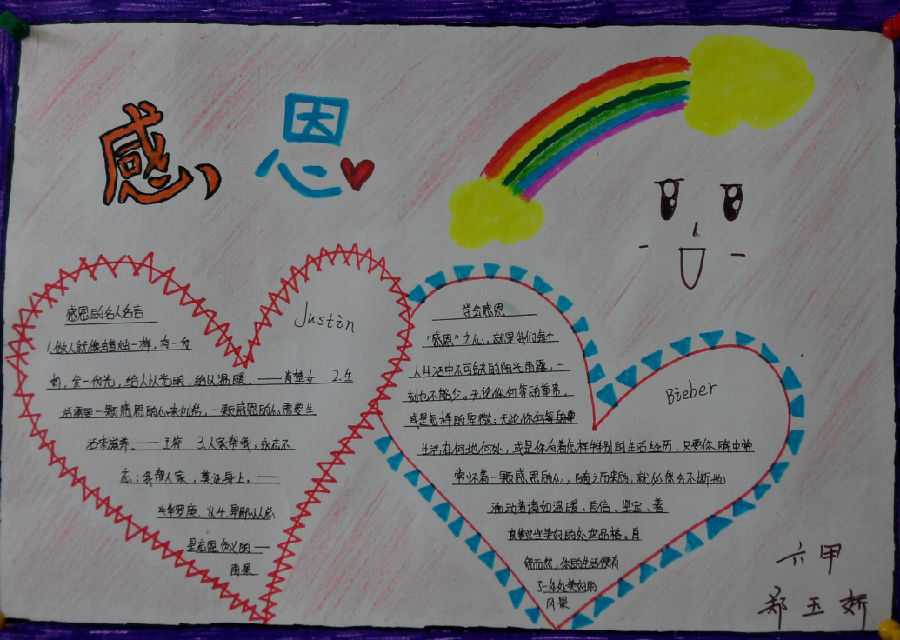 感恩
感恩的名人名言
Justin
1.做人就像蜡烛一样,有一分
热,发一份光,给人以光明,给以温暖。——肖楚女 2.生
活需要一颗感恩的心来创造,一颗感恩的心需要生
活来滋养。——王符 3.人家帮我,永远不
忘;我帮人家,莫记身上。——
华罗庚 4.卑鄙小人总
是忘恩负义的——
雨果
学会感恩
Bieber
"感恩"之心,就是我们每个
人生活中不可或缺的阳光雨露,一
刻也不能少。无论你何等的尊贵,
或是怎样的卑微;无论你何等的
生活在何地何处,或是你有着怎样特别的生活经历,只要你胸中常
常怀着一颗感恩的心,随之而来的,就必然会不断地
涌动着诸如温暖、自信、坚定、善
良等这些美好的处世品格。自
然而然,你的生活便有
了一处美好的
风景
六甲
郑玉娇